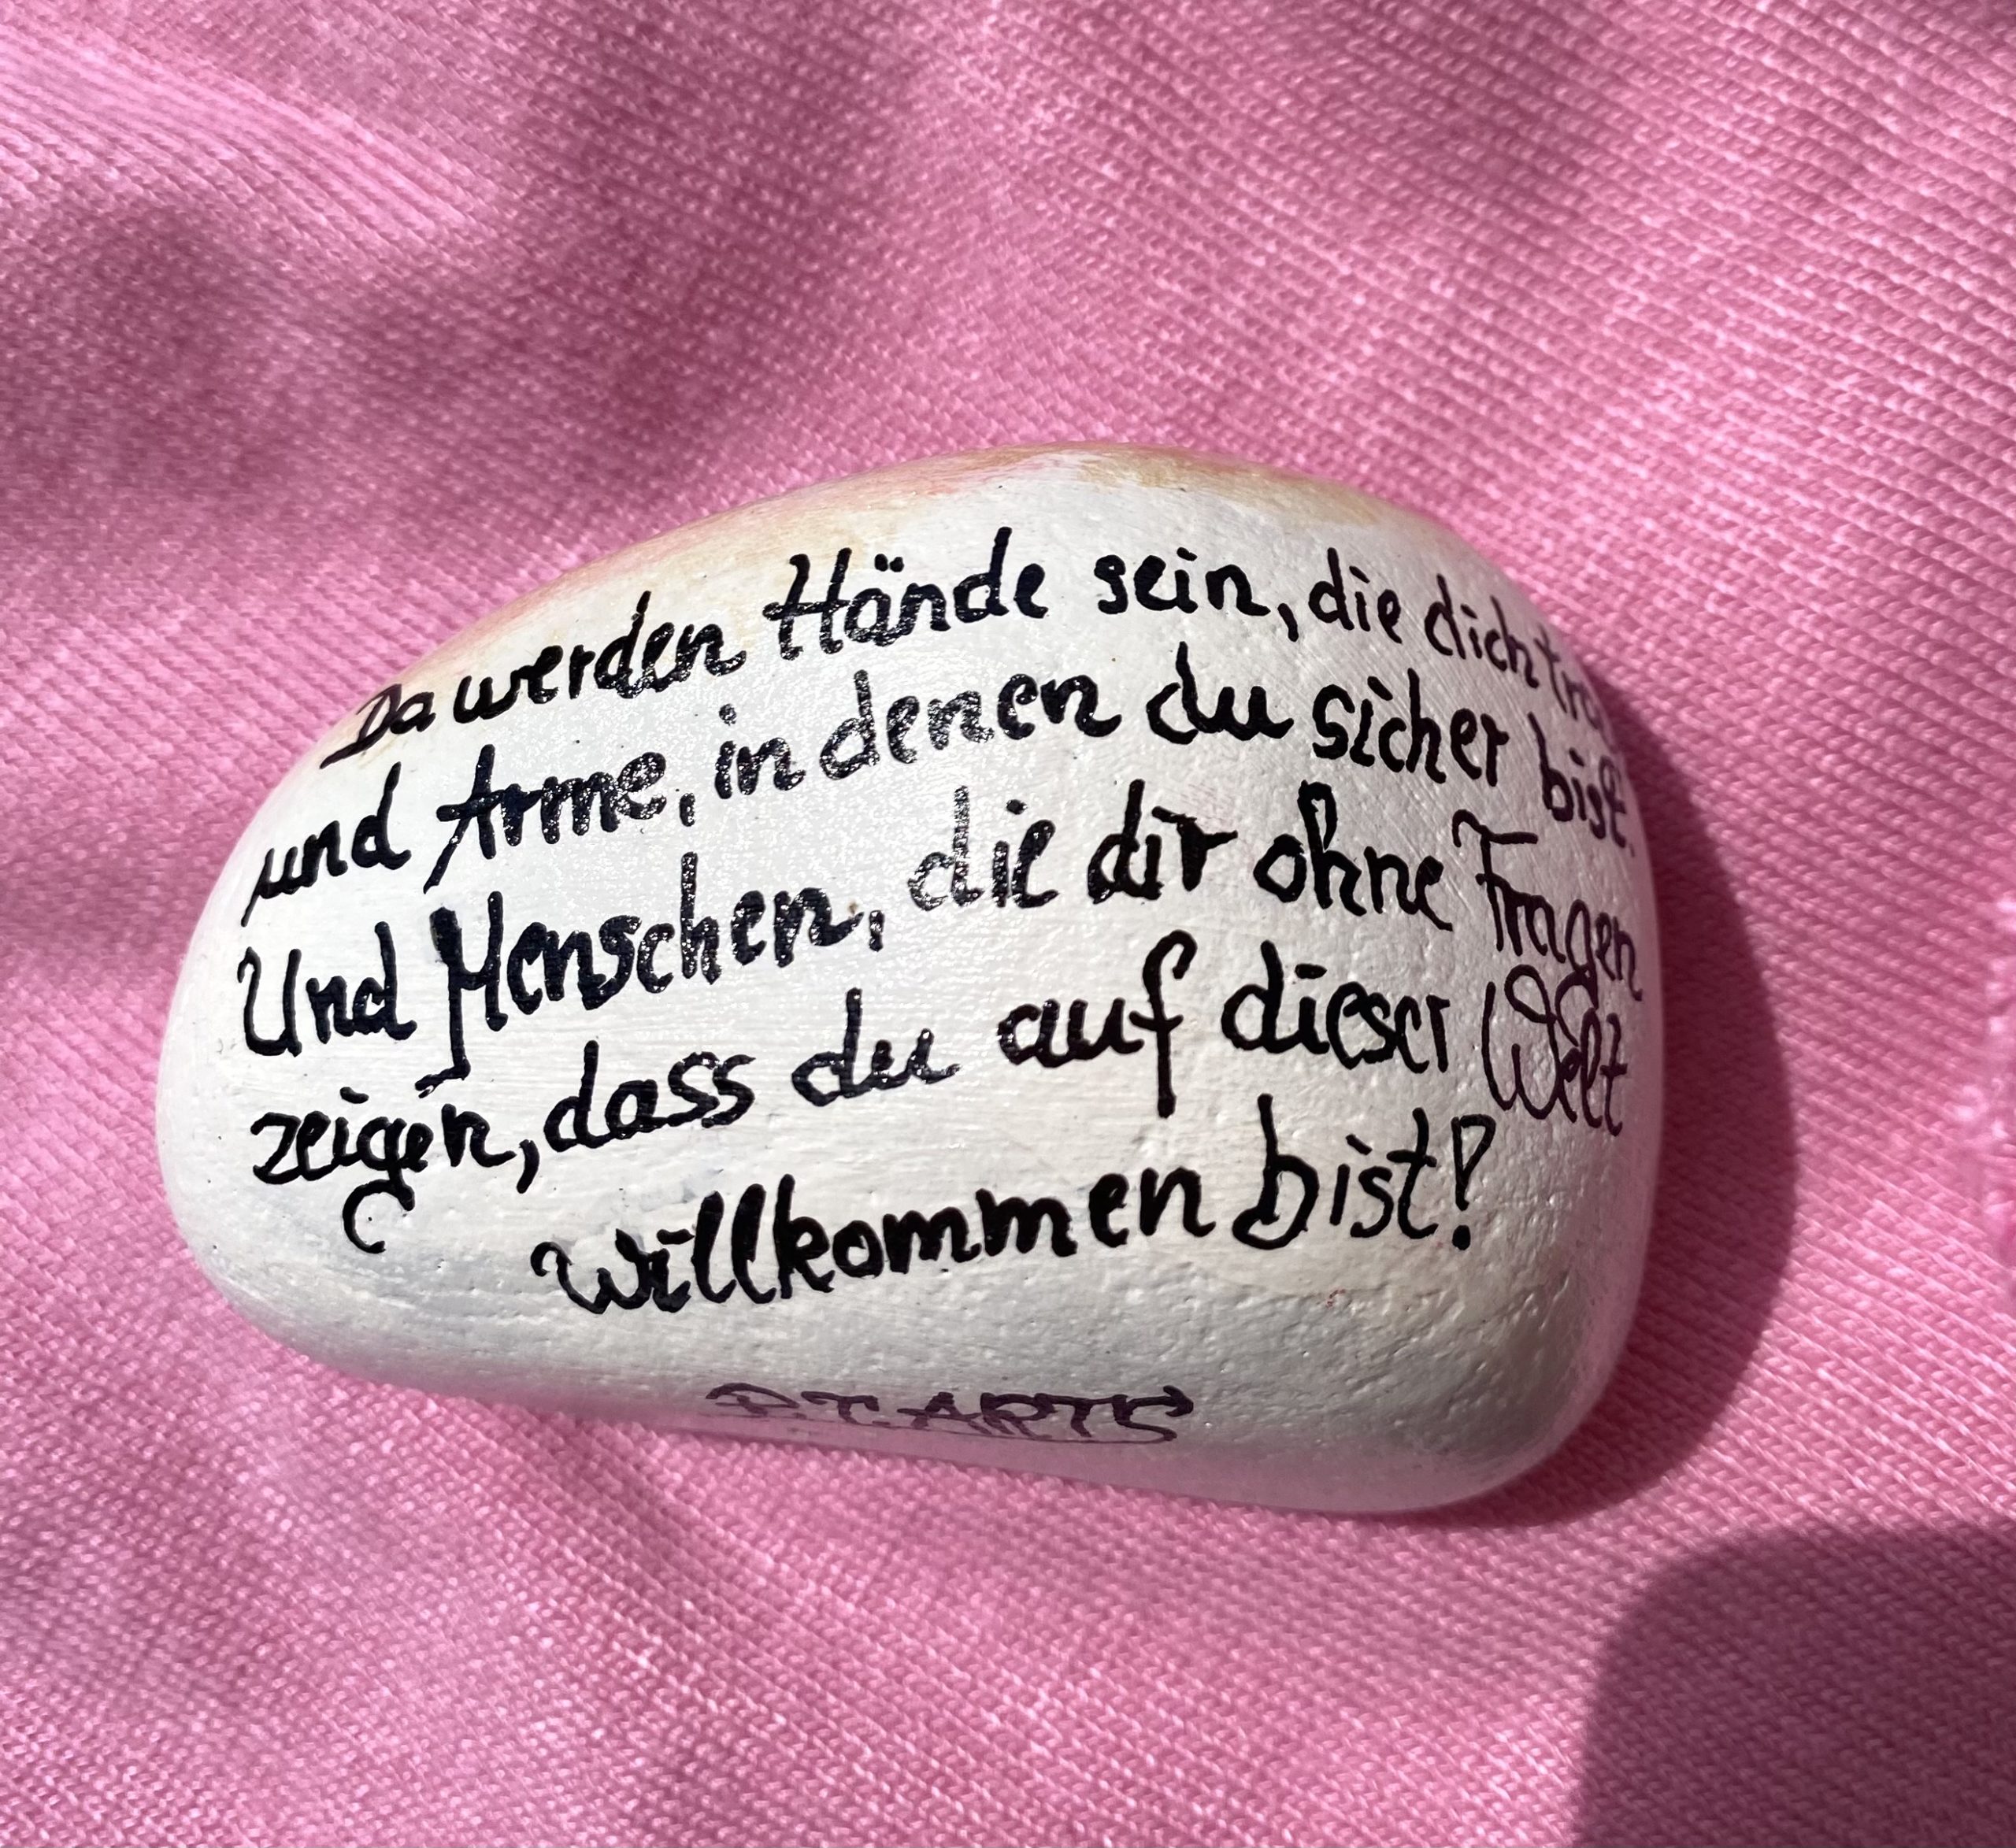 Da werden Hände sein, die dich
und Arme, in denen du sicher bist.
Und Menschen, die dir ohne Fragen
zeigen, dass du auf dieser Welt
willkommen bist!
P.T. ARTS